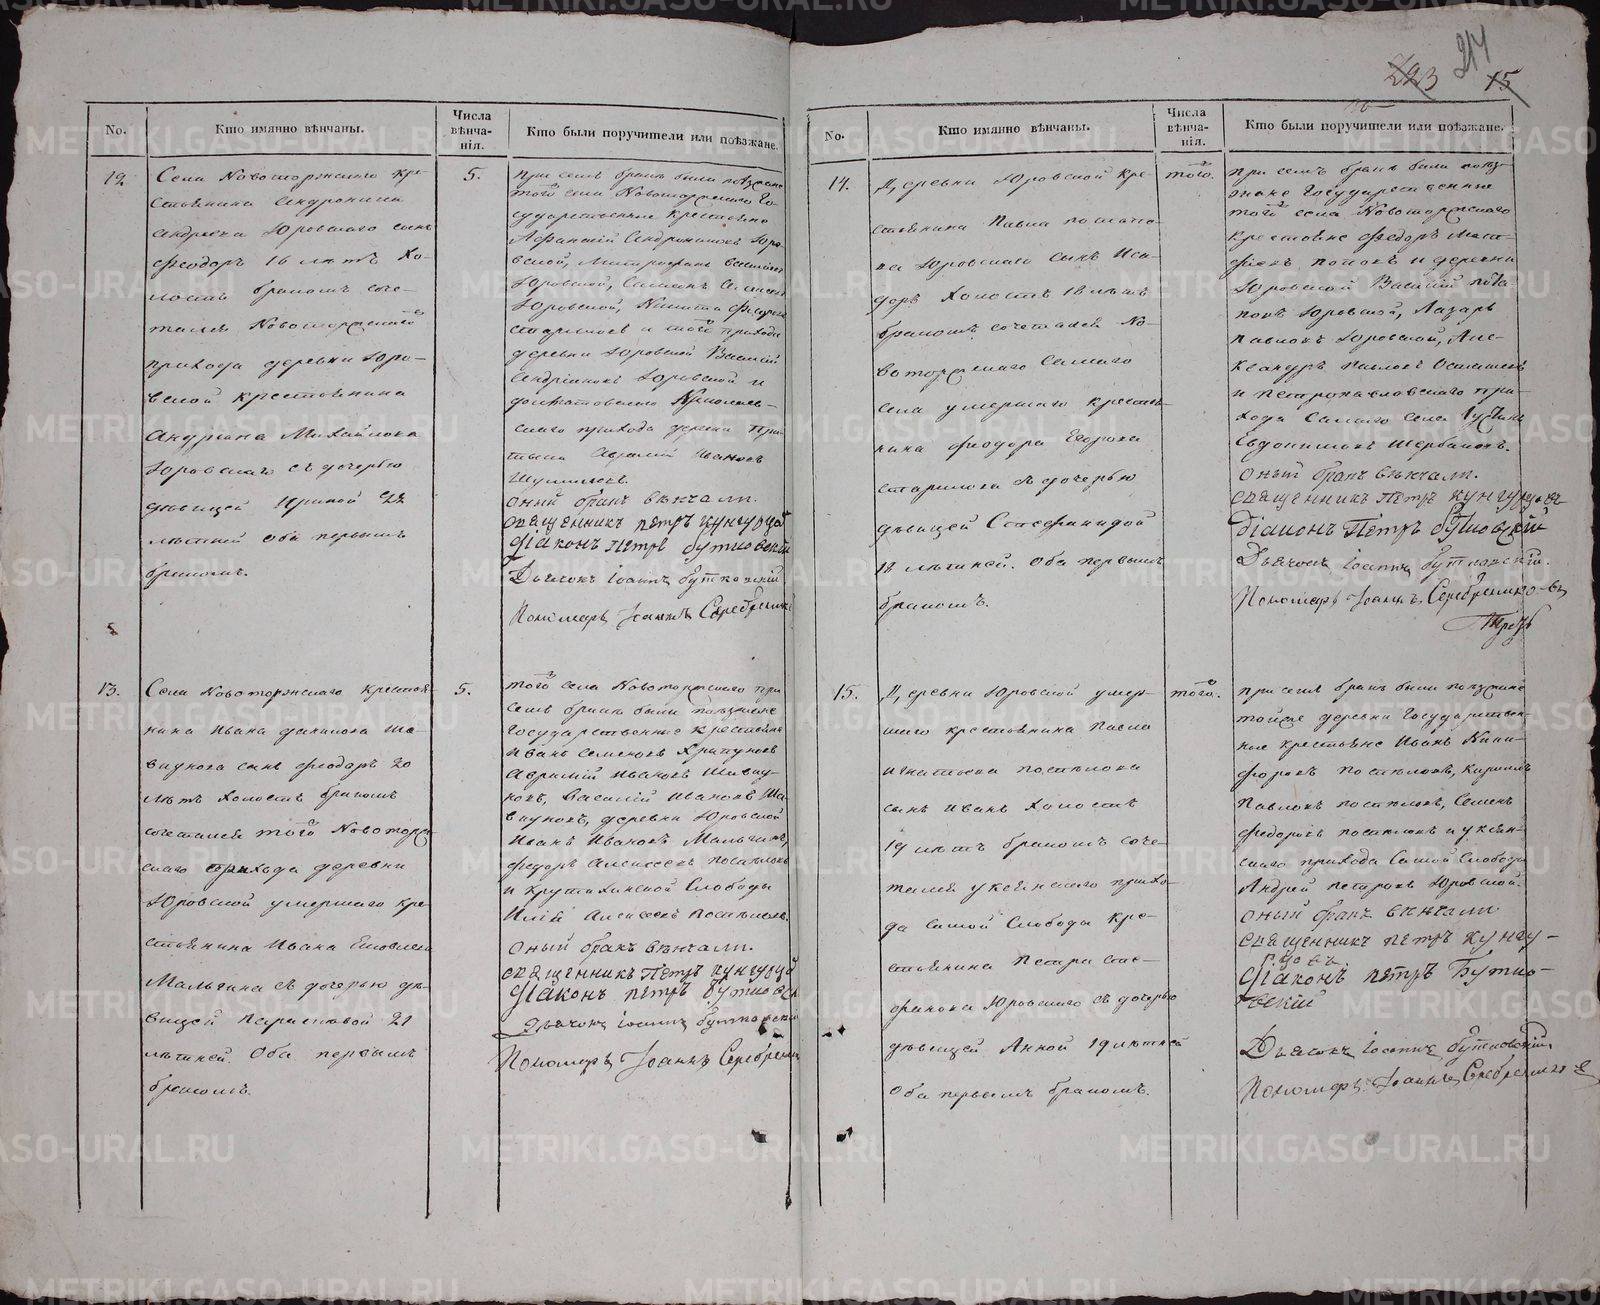 223 214 15
No.
Кто имянно вѣнчаны.
Числа вѣнча-нія.
Кто были поручители или поѣзжане.
12
Села Новоторжскаго кре-
стьянина Андроника
Юровскаго сынъ
Феодоръ 16 лѣтъ хо-
лостъ бракомъ соче-
тался Новоторжскаго
прихода деревни Юро-
вской крестьянина
Андрiана Михайлова
Юровскаго съ дочерью
дѣвицей Ириной 22
лѣтней Оба первымъ
бракомъ.
5.
при семъ бракѣ были поѣзжане
того села Новоторжскаго Го-
сударственные крестьяне
Афанасiй Андрониковъ Юро-
вской, Митрофанъ
Юровской, Семенъ
Юровской, Никита
и того прихода
деревни Юровской Василiй
Андрiановъ Юровской и
прихода деревни
Ивановъ
Шушиловъ.
оный бракъ вѣнчали.
священникъ Петръ Кунгуров
дiаконъ Петръ Бутковскiй
Дьячокъ Iоаннъ Бутковскiй
Пономарь Iоаннъ Серебреник
13.
Села Новоторжскаго крестья-
нина Ивана Данилова Ша-
внукова сынъ Феодоръ 20
лѣтъ холостъ бракомъ
сочетался того Новоторж-
скаго прихода деревни
Юровской умершаго кре-
стьянина Ивана
Мальгина съ дочерью дѣ-
вицей Парасковой 21
лѣтней. Оба первымъ
бракомъ.
5.
того села Новоторжскаго при
семъ бракѣ были поѣзжане
Государственные крестьяне
Иванъ Семеновъ Храпуновъ
Ивановъ Шавну-
ковъ, Василiй Ивановъ Ша-
внуковъ, деревни Юровской
Иванъ Ивановъ Мальгинъ,
Федоръ Алексеевъ Поспѣловъ
и Крутихинской Слободы
Алексеевъ Поспѣловъ.
оный бракъ вѣнчали.
священникъ Петръ Кунгуров
дiаконъ Петръ Бутковск
Дьячокъ Iоаннъ Бутковскiй
Пономарь Iоаннъ Серебреник
No.
Кто имянно вѣнчаны.
Числа вѣнча-нія.
Кто были поручители или поѣзжане.
14.
Деревни Юровской кре-
стьянина Павла
Юровскаго сынъ Иси-
доръ Холостъ 18 лѣтъ
бракомъ сочетался Но-
воторжскаго Самаго
села умершаго крестья-
нина Феодора Егорова
Старикова съ дочерью
дѣвицей Стефанидой
18 лѣтней. Оба первымъ
бракомъ.
того.
при семъ бракѣ были поѣз-
жане Государственные
того села Новоторжскаго
крестьяне Федоръ Мат-
и деревни
Юровской Василiй
Юровской, Лазарь
Павловъ Юровской, Але-
ксандръ Павловъ
и Петропавловскаго при-
хода Самаго села
Евдокимовъ Щербаковъ.
оный бракъ вѣнчали.
священникъ Петръ Кунгуровъ
Дiаконъ Петръ Бутковскiй
Дьячокъ Iоаннъ Бутковскiй.
Пономарь Iоаннъ Серебренико-въ
15.
Деревни Юровской умер-
шаго крестьянина Павла
Игнатьева Поспѣлова
сынъ Иванъ Холостъ
19 лѣтъ бракомъ соче-
тался Уксянскаго прихо-
да Самой Слободы кре-
стьянина Петра Сте-
фанова Юровскаго съ дочерью
дѣвицей Анной 19 лѣтней
Оба первымъ бракомъ.
того.
при семъ бракѣ были поѣзжане
тойже деревни Государствен-
ные крестьяне Иванъ Ники-
форовъ Поспѣловъ, Кирилъ
Павловъ Поспѣловъ, Семенъ
Федоровъ Поспѣловъ и Уксян-
скаго прихода Самой Слободы
Андрей Петровъ Юровской.
оный бракъ вѣнчали
священникъ Петръ Кунгу-
ровъ
дiаконъ Петръ Бутко-
вскiй
Дьячокъ Iоаннъ Бутковскiй.
Пономарь Iоаннъ Серебренико-в
METRIKI.GASO-URAL.RU